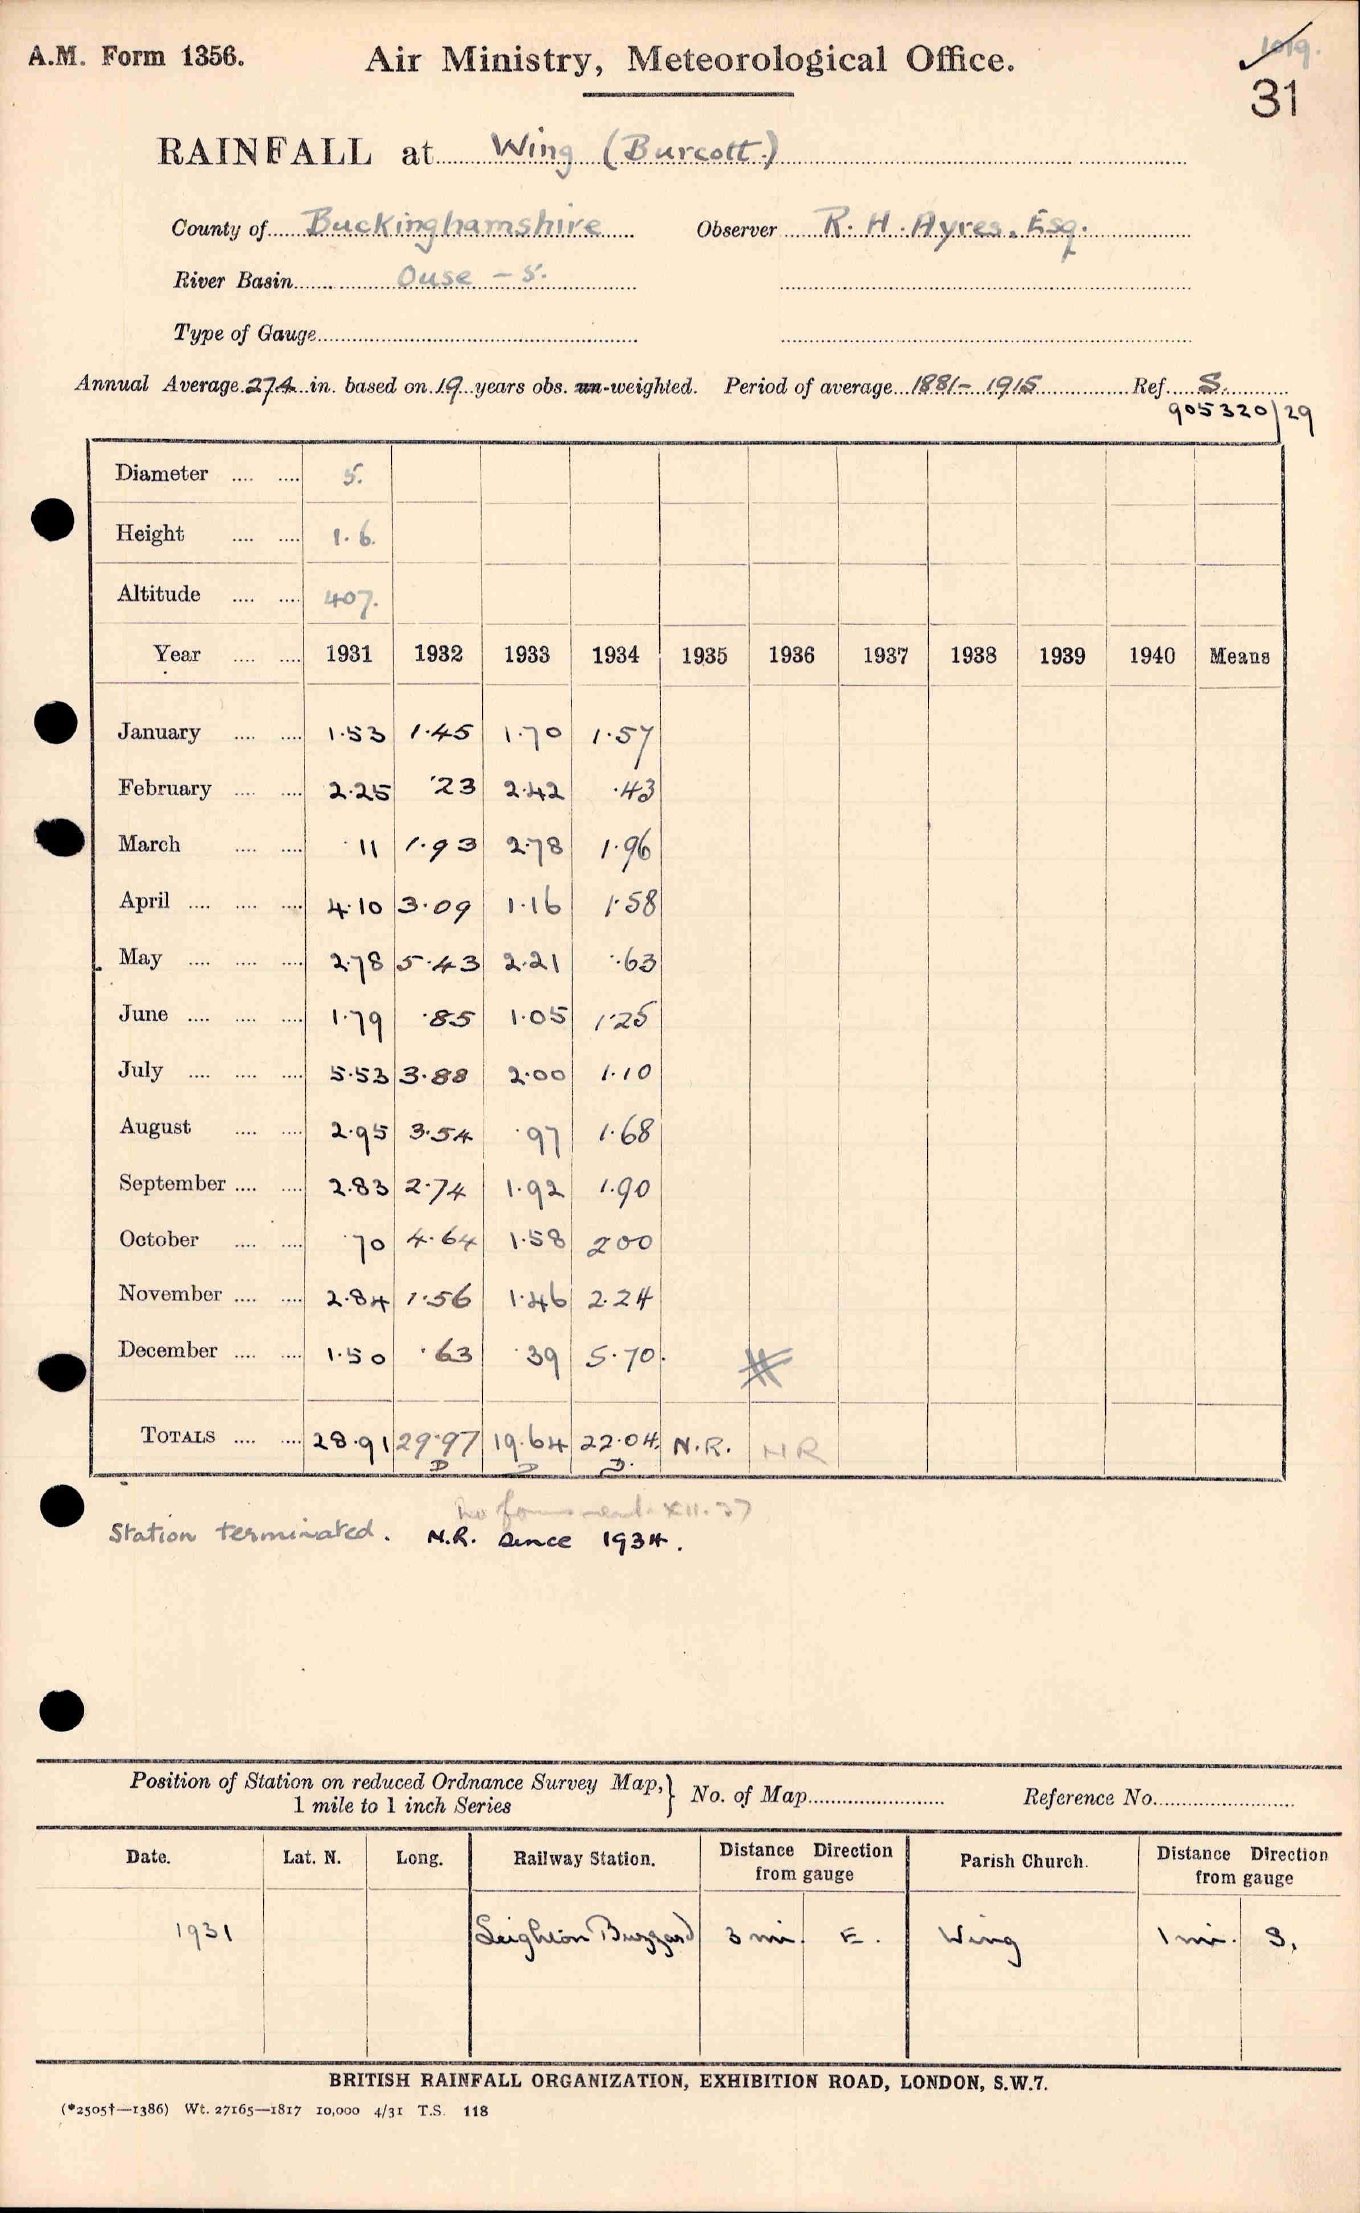 A.M. Form 1356. Air Ministry, Meteorological Office. 1019.
31
RAINFALL at Wing (Burcott.)
County of Buckinghamshire Observer R. H. Ayres, Esq.
River Basin Ouse - 5.
Type of Gauge
Annual Average 27.4 in. based on 19 years obs. un-weighted. Period of average 1881-1915 Ref. S.
905320/29
Diameter 5.
Height 1.6.
Altitude 407.
Year 1931 1932 1933 1934 1935 1936 1937 1938 1939 1940 Means
January 1.53 1.45 1.70 1.57
February 2.25 .23 2.42 .43
March .11 1.93 2.78 1.96
April 4.10 3.09 1.16 1.58
May 2.78 5.43 2.21 .63
June 1.79 .85 1.05 1.25
July 5.53 3.88 2.00 1.10
August 2.95 3.54 .97 1.68
September 2.83 2.74 1.92 1.90
October .70 4.64 1.58 2.00
November 2.84 1.56 1.46 2.24
December 1.50 .63 .39 5.70.
TOTALS 28.91 29.97 19.64 22.04. N.R. NR
D D D.
No forms XII.37
Station terminated. N.R. since 1934.
Position of Station on reduced Ordnance Survey Map, } No. of Map Reference No.
1 mile to 1 inch Series
Date. Lat. N. Long. Railway Station. Distance Direction from gauge Parish Church. Distance Direction from gauge
1931 Leighton Buzzard 3 mi. E. Wing 1 mi. S.
BRITISH RAINFALL ORGANIZATION, EXHIBITION ROAD, LONDON, S.W.7.
(*2505†—1386) Wt. 27165—1817 10,000 4/31 T.S. 118